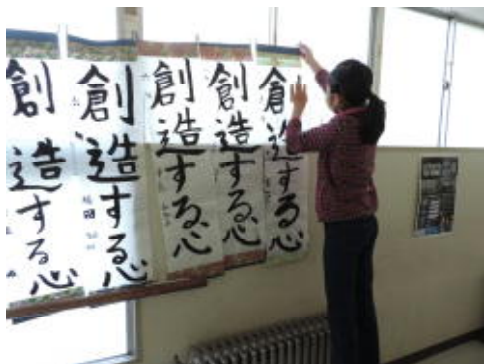 創造する心
創造する心
創造する心
創造する心
創造する心